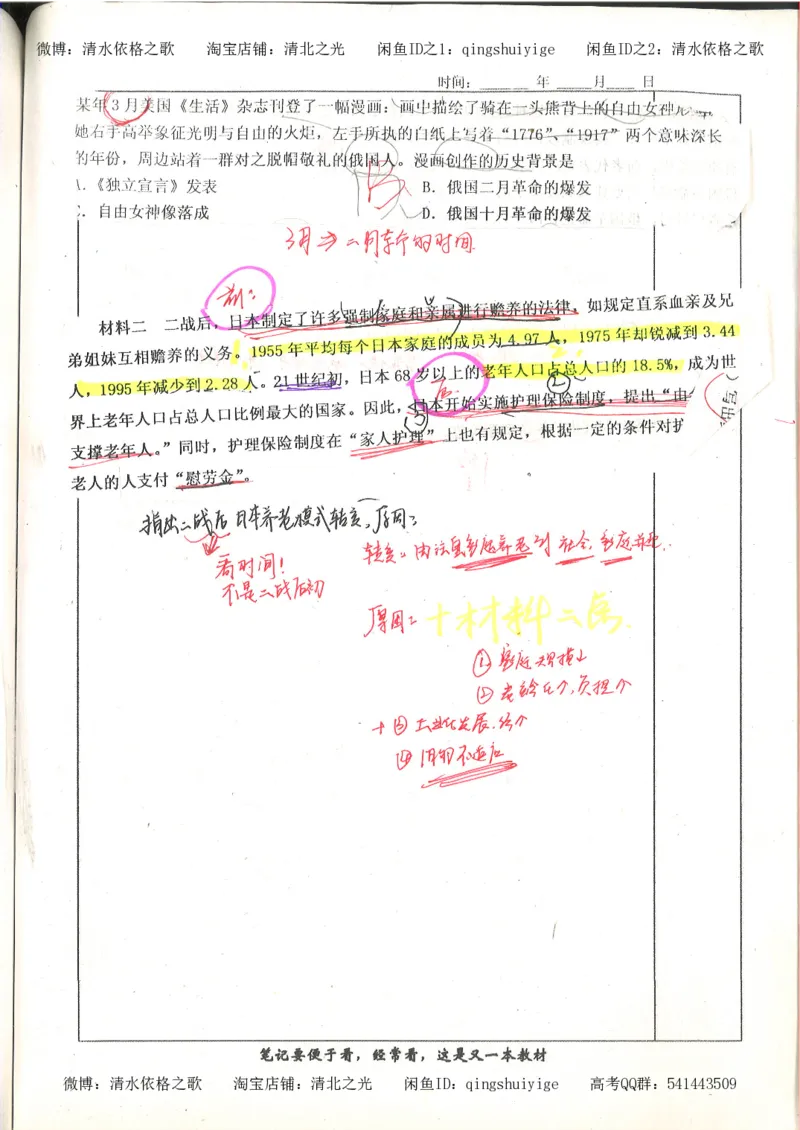 微博：清水依格之歌 淘宝店铺：清北之光 闲鱼ID之1：qingshuiyige 闲鱼ID之2：清水依格之歌
时间：______年______月______日
某年3月美国《生活》杂志刊登了一幅漫画：画中描绘了骑在一头熊背上的自由女神
她右手高举象征光明与自由的火炬，左手所执的白纸上写着“1776”、“1917”两个意味深长
的年份，周边站着一群对之脱帽敬礼的俄国人。漫画创作的历史背景是
《独立宣言》发表 B. 俄国二月革命的爆发
自由女神像落成 D. 俄国十月革命的爆发
3月⇒二月革命的时间
前：
材料二 二战后，日本制定了许多强制家庭和亲属进行赡养的法律，如规定直系血亲及兄
弟姐妹互相赡养的义务。1955年平均每个日本家庭的成员为4.97人，1975年却锐减到3.44
人，1995年减少到2.28人。21世纪初，日本68岁以上的老年人口占总人口的18.5%，成为世
后：
②
界上老年人口占总人口比例最大的国家。因此，日本开始实施护理保险制度，提出“由
③
支撑老年人。”同时，护理保险制度在“家人护理”上也有规定，根据一定的条件对护
老人的人支付“慰劳金”。
指出二战后日本养老模式转变，原因：
看时间！
不是二战后初
转变：由法律家庭养老到 社会、家庭并进
原因：十材料二后
① 家庭规模↓
② 老龄化↑，负担↑
+③ 工业化发展，经个
④ 旧的不适应
笔记要便于看，经常看，这是又一本教材
微博：清水依格之歌 淘宝店铺：清北之光 闲鱼ID：qingshuiyige 高考QQ群：541443509